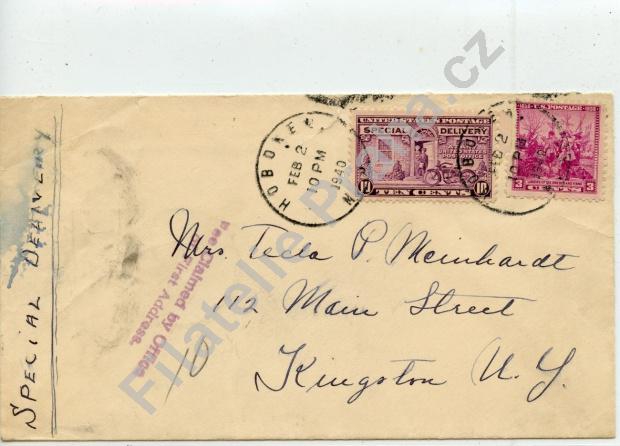 SPECIAL DELIVERY
HOBOKEN, N
FEB 2
10 PM
1940
UNITED STATES POSTAGE
SPECIAL DELIVERY
10 TEN CENTS 10
U.S. POSTAGE
3 CENTS 3
HOBOKEN
FEB 2
10 PM
Fee Claimed by Office
of First Address.
10
Mrs. Tecla P. Meinhardt
112 Main Street
Kingston N. Y.
Filatelie Praha.cz